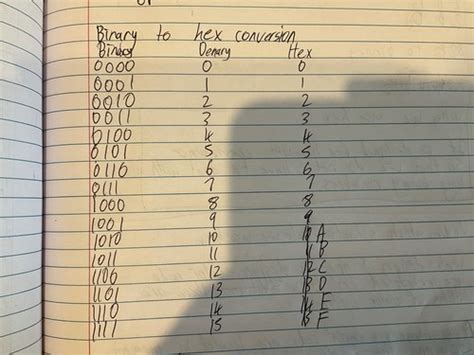 or
Binary to hex conversion
Binary Denary Hex
0000 0 0
0001 1 1
0010 2 2
0011 3 3
0100 4 4
0101 5 5
0110 6 6
0111 7 7
1000 8 8
1001 9 9
1010 10 A
1011 11 B
1100 12 C
1101 13 D
1110 14 E
1111 15 F